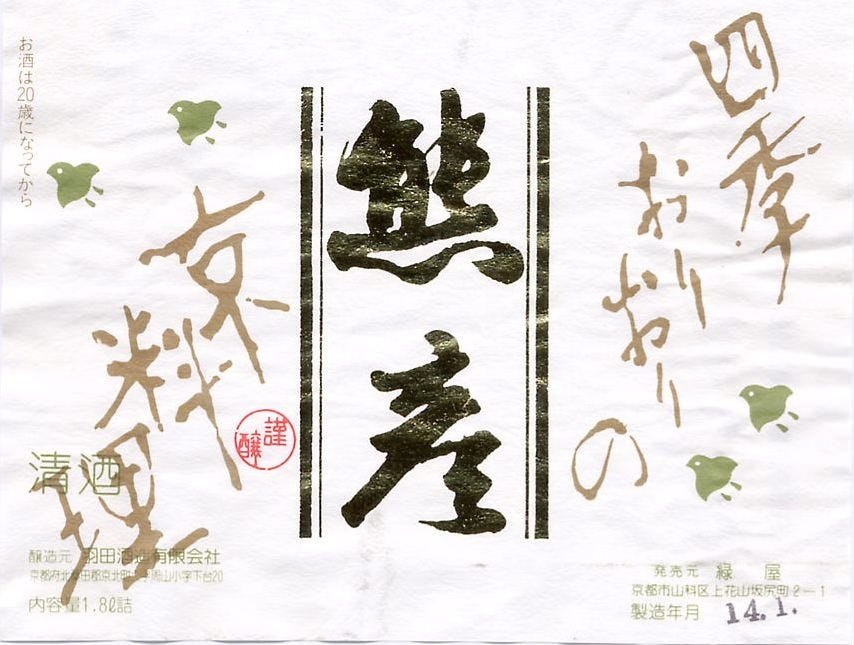 四季
おりおりの
熊彦
京料理
謹醸
お酒は20歳になってから
清酒
醸造元 羽田酒造有限会社
京都府北桑田郡京北町大字周山小字下台20
内容量1.8ℓ詰
発売元 緑屋
京都市山科区上花山坂尻町2-1
製造年月 14.1.